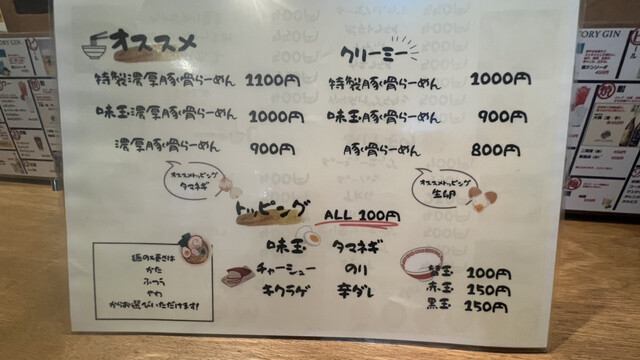 オススメ
特製濃厚豚骨らーめん 1100円
味玉濃厚豚骨らーめん 1000円
濃厚豚骨らーめん 900円
オススメトッピング
タマネギ
クリーミー
特製豚骨らーめん 1000円
味玉豚骨らーめん 900円
豚骨らーめん 800円
オススメトッピング
生卵
トッピング ALL 100円
味玉 タマネギ
チャーシュー のり
キクラゲ 辛ダレ
麺の硬さは
かた
ふつう
やわ
からお選びいただけます!
替玉 100円
赤玉 150円
黒玉 150円
TORY GIN